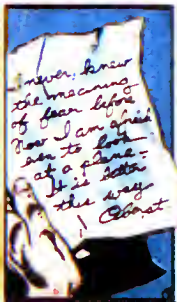 I never knew
the meaning
of fear before
Now I am afraid
even to look
at a plane -
It is better
this way